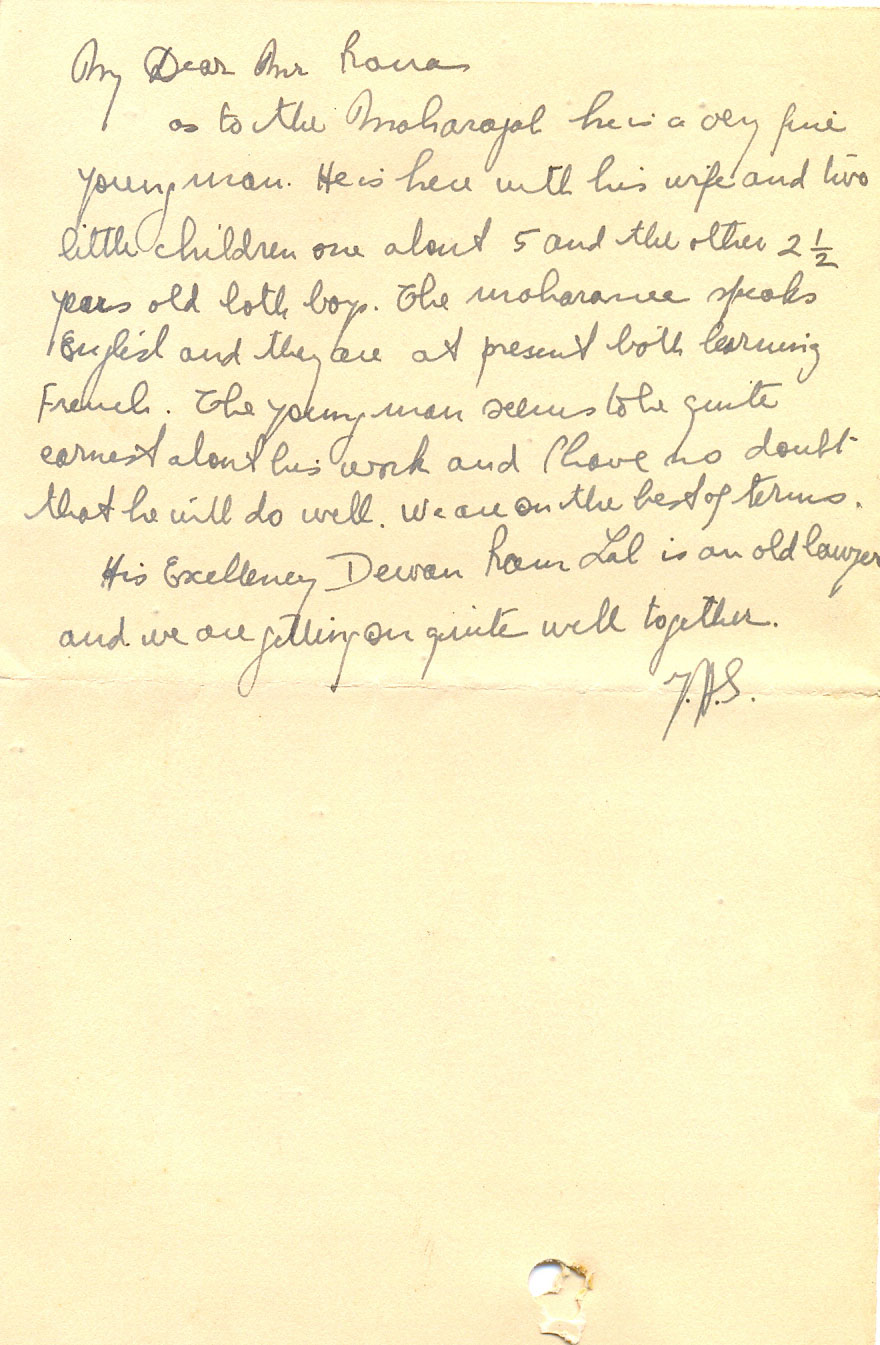 My Dear Mr Rana
as to the Maharajah he is a very fine
young man. He is here with his wife and two
little children one about 5 and the other 2 1/2
years old both boys. The maharanee speaks
English and they are at present both learning
French. The young man seems to be quite
earnest about his work and I have no doubt
that he will do well. We are on the best of terms.
His Excellency Dewan Ram Lal is an old lawyer
and we are getting on quite well together.